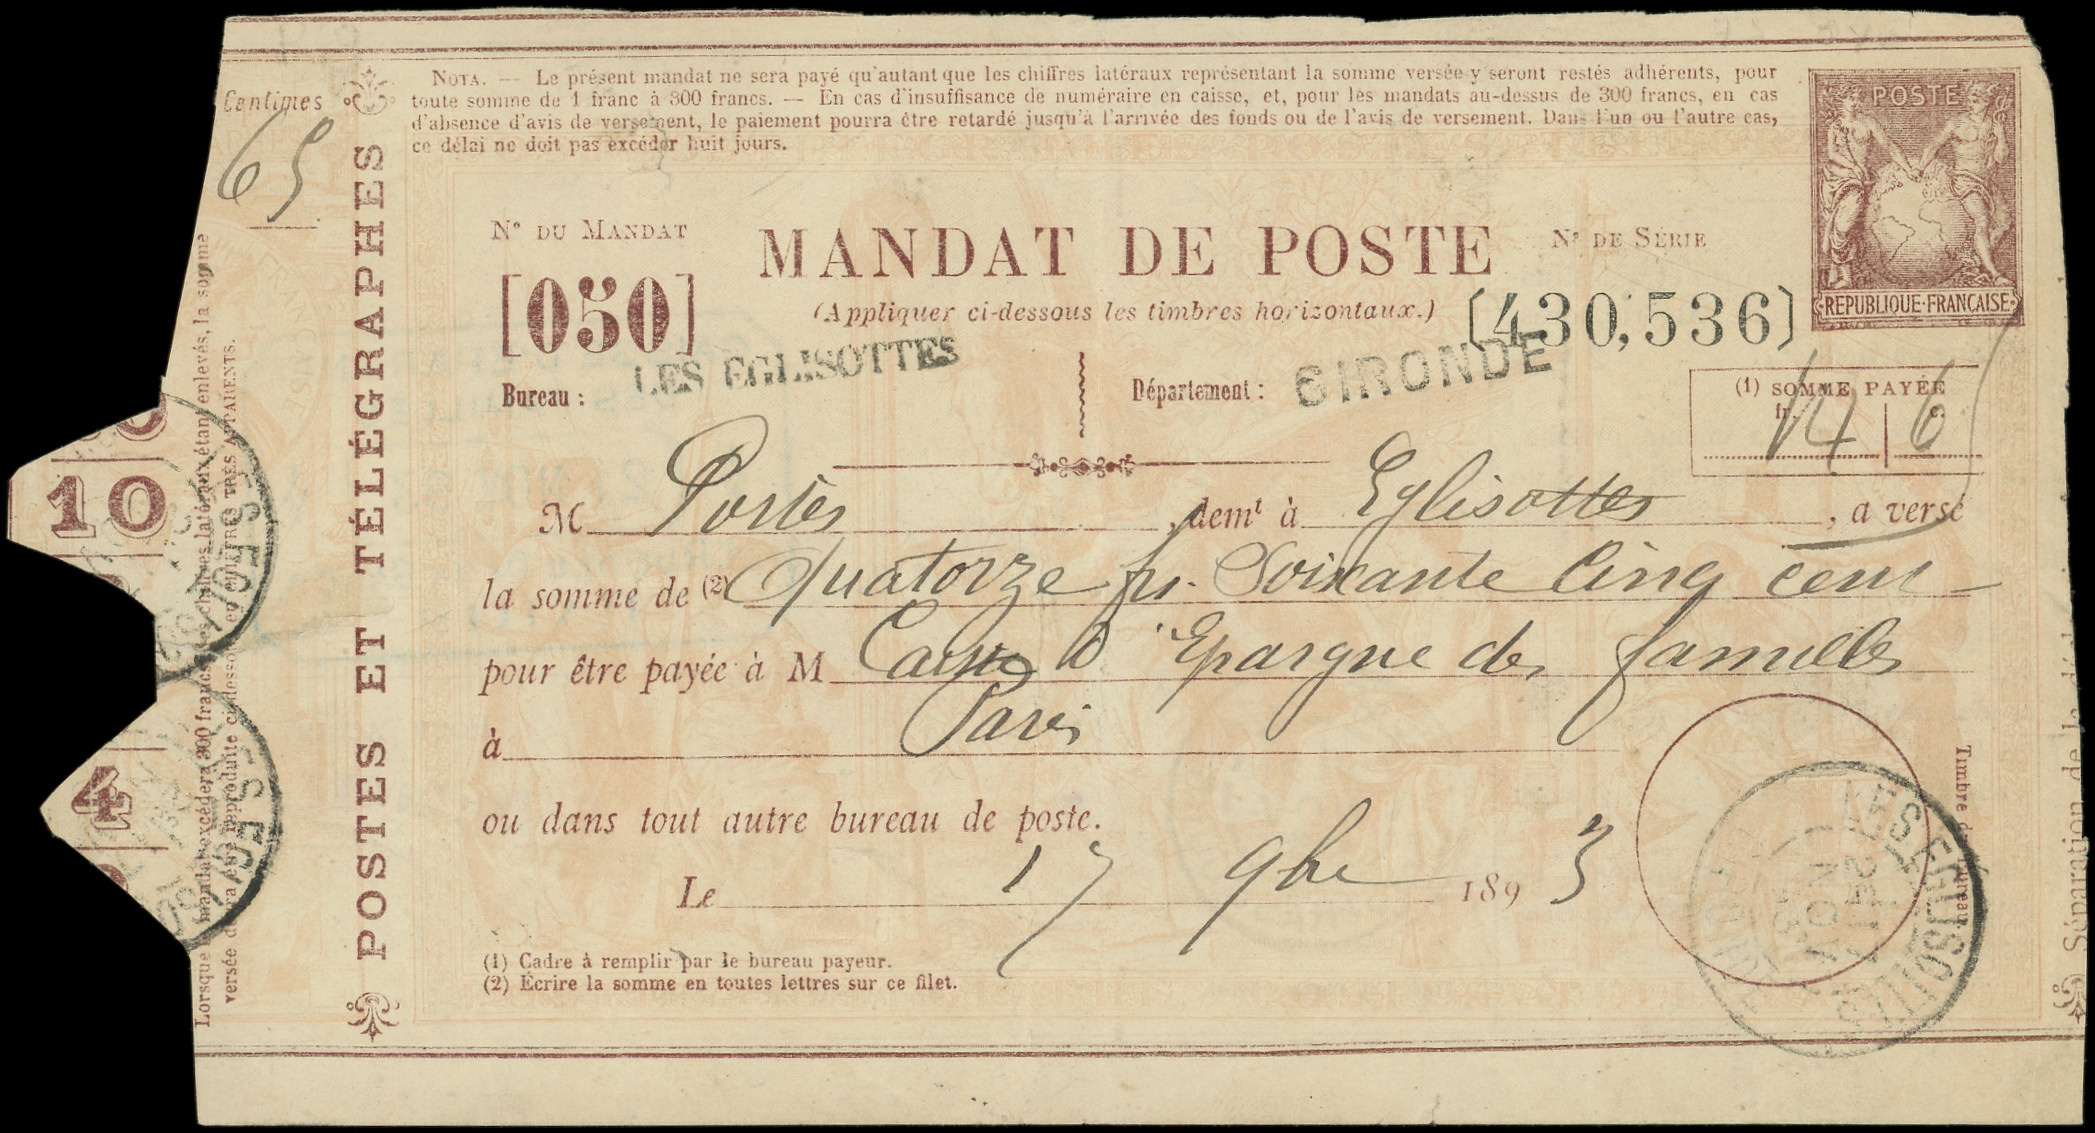 Centimes
65
NOTA. — Le présent mandat ne sera payé qu'autant que les chiffres latéraux représentant la somme versée y seront restés adhérents, pour
toute somme de 1 franc à 300 francs. — En cas d'insuffisance de numéraire en caisse, et, pour les mandats au-dessus de 300 francs, en cas
d'absence d'avis de versement, le paiement pourra être retardé jusqu'à l'arrivée des fonds ou de l'avis de versement. Dans l'un ou l'autre cas,
ce délai ne doit pas excéder huit jours.
POSTE
REPUBLIQUE·FRANCAISE
POSTES ET TÉLÉGRAPHES
N° DU MANDAT
[050]
MANDAT DE POSTE
(Appliquer ci-dessous les timbres horizontaux.)
N° DE SÉRIE
[430,536]
Bureau : LES EGLISOTTES
Département : GIRONDE
(1) SOMME PAYÉE
fr. c.
14 6
M Portes, demt à Eglisottes, a versé
la somme de (2) Quatorze frs. Soixante Cinq cent
pour être payée à M Caisse d'Epargne des familles
à Paris
ou dans tout autre bureau de poste.
Le 17 9bre 1893
(1) Cadre à remplir par le bureau payeur.
(2) Écrire la somme en toutes lettres sur ce filet.
10
4
LES EGLISOTTES
NOV
Séparation de la